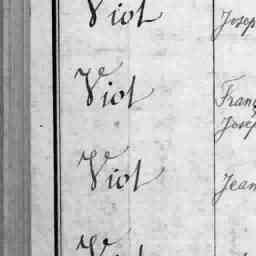 Viot Josep
Viot Franç
Josep
Viot Jean